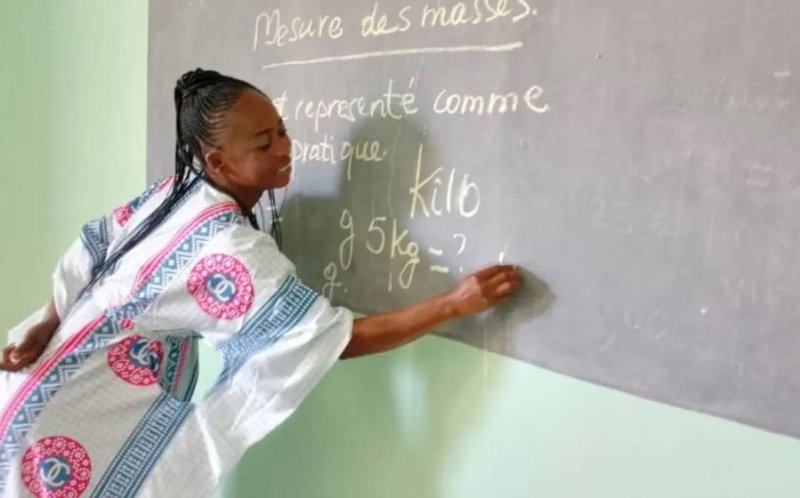 Mesure des masses.
représenté comme
pratique.
kilo
g 5kg = ?
g.